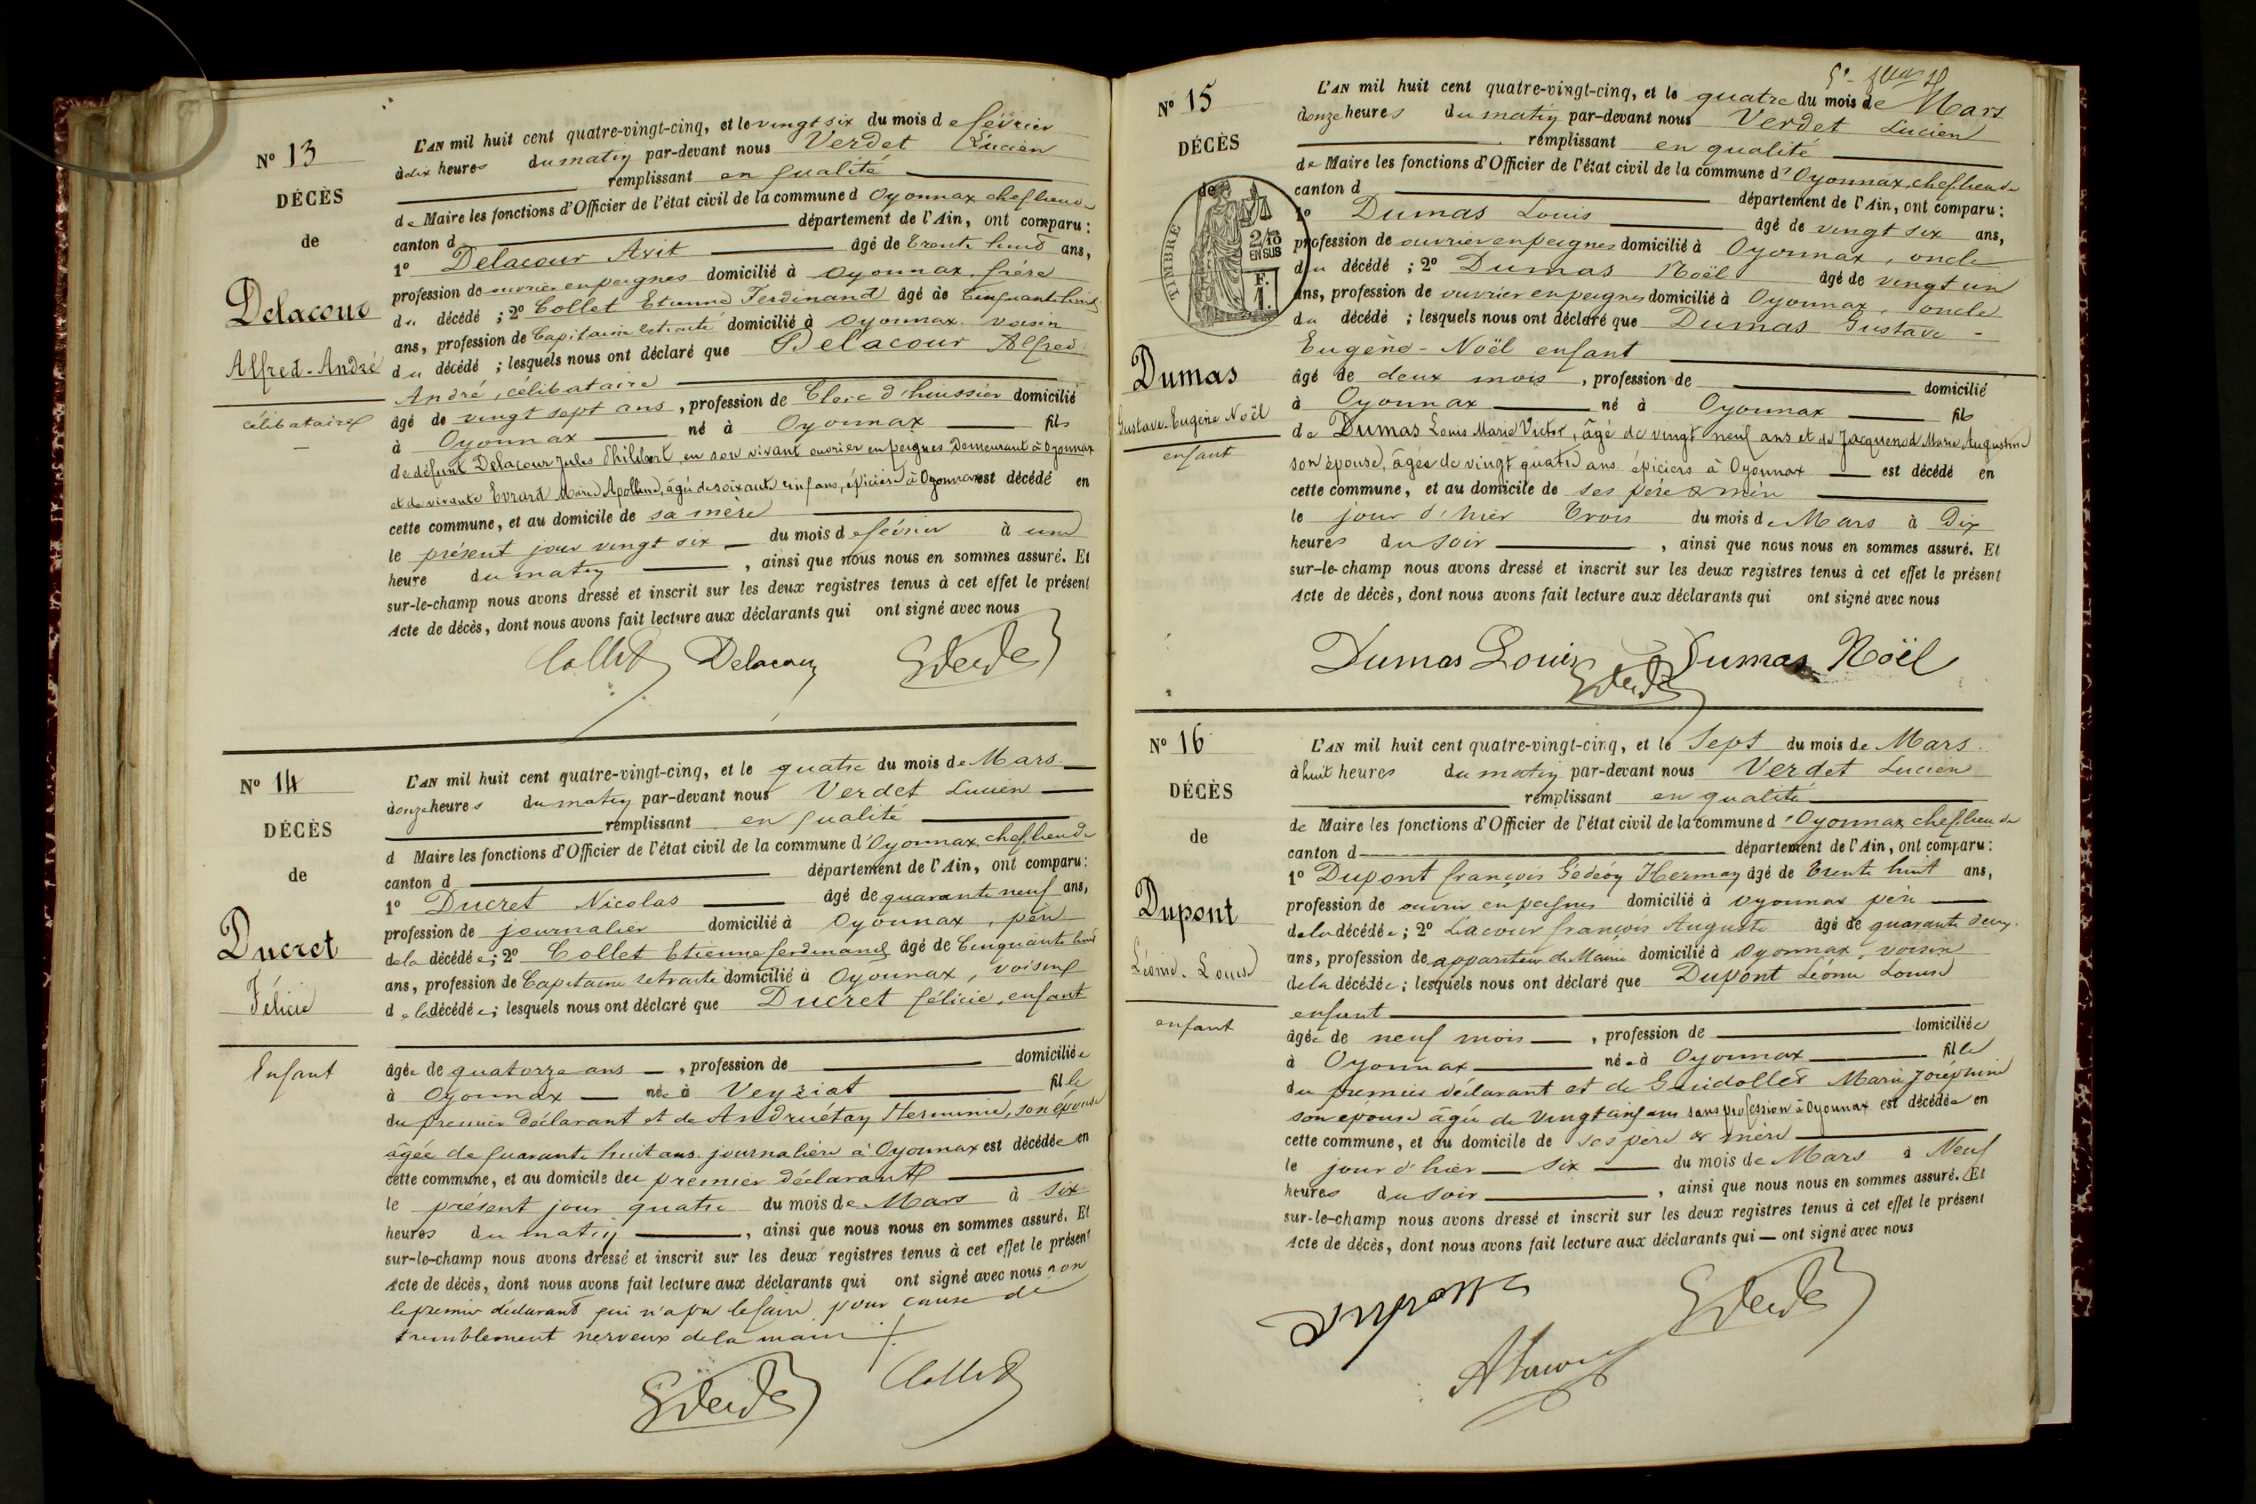 Nº 13
DÉCÈS
de
Delacour
Alfred-André
célibataire
L'AN mil huit cent quatre-vingt-cinq, et le vingt six du mois de février
à dix heures du matin par-devant nous Verdet Lucien
remplissant en qualité
de Maire les fonctions d'Officier de l'état civil de la commune d Oyonnax chef lieu de
canton d département de l'Ain, ont comparu :
1º Delacour Avit âgé de trente huit ans,
profession de ouvrier en peignes domicilié à Oyonnax, frère
du décédé ; 2º Collet Etienne Ferdinand âgé de cinquante huit
ans, profession de Capitaine retraité domicilié à Oyonnax voisin
du décédé ; lesquels nous ont déclaré que Delacour Alfred
André, célibataire
âgé de vingt sept ans, profession de Clerc d'huissier domicilié
à Oyonnax né à Oyonnax fils
de défunt Delacour Jules Philibert en son vivant ouvrier en peignes demeurant à Oyonnax
et de vivante Evrard Marie Apolline, âgée de soixante cinq ans, épicière à Oyonnax est décédé en
cette commune, et au domicile de sa mère
le présent jour vingt six du mois de février à une
heure du matin, ainsi que nous nous en sommes assuré. Et
sur-le-champ nous avons dressé et inscrit sur les deux registres tenus à cet effet le présent
Acte de décès, dont nous avons fait lecture aux déclarants qui ont signé avec nous
Collet Delacour Verdet
Nº 14
DÉCÈS
de
Ducret
Félicie
Enfant
L'AN mil huit cent quatre-vingt-cinq, et le quatre du mois de Mars
à onze heures du matin par-devant nous Verdet Lucien
remplissant en qualité
d Maire les fonctions d'Officier de l'état civil de la commune d'Oyonnax, chef lieu de
canton d département de l'Ain, ont comparu :
1º Ducret Nicolas âgé de quarante neuf ans,
profession de journalier domicilié à Oyonnax, père
de la décédée ; 2º Collet Etienne ferdinand âgé de Cinquante huit
ans, profession de Capitaine retraité domicilié à Oyonnax, voisin
de la décédée ; lesquels nous ont déclaré que Ducret félicie, enfant
âgée de quatorze ans, profession de domiciliée
à Oyonnax née à Veyziat fille
du premier déclarant et de Andruétan Herminie, son épouse
âgée de quarante huit ans journalière à Oyonnax est décédée en
cette commune, et au domicile du premier déclarant
le présent jour quatre du mois de Mars à six
heures du matin, ainsi que nous nous en sommes assuré. Et
sur-le-champ nous avons dressé et inscrit sur les deux registres tenus à cet effet le présent
Acte de décès, dont nous avons fait lecture aux déclarants qui ont signé avec nous non
le premier déclarant qui n'a pu le faire pour cause de
tremblement nerveux de la main
Verdet Collet
Nº 15
DÉCÈS
de
TIMBRE
2/10
EN SUS
F.
1.
Dumas
Gustave-Eugène Noël
enfant
L'AN mil huit cent quatre-vingt-cinq, et le quatre du mois de Mars
à onze heures du matin par-devant nous Verdet Lucien
remplissant en qualité
de Maire les fonctions d'Officier de l'état civil de la commune d'Oyonnax, chef lieu de
canton d département de l'Ain, ont comparu :
1º Dumas Louis âgé de vingt six ans,
profession de ouvrier en peignes domicilié à Oyonnax, oncle
du décédé ; 2º Dumas Noël âgé de vingt un
ans, profession de ouvrier en peignes domicilié à Oyonnax, oncle
du décédé ; lesquels nous ont déclaré que Dumas Gustave -
Eugène - Noël enfant
âgé de deux mois, profession de domicilié
à Oyonnax né à Oyonnax fils
de Dumas Louis Marie Victor, âgé de vingt neuf ans et de Jacquenod Marie Augustine
son épouse, âgée de vingt quatre ans épiciers à Oyonnax est décédé en
cette commune, et au domicile de ses père & mère
le jour d'hier trois du mois de Mars à Dix
heures du soir, ainsi que nous nous en sommes assuré. Et
sur-le-champ nous avons dressé et inscrit sur les deux registres tenus à cet effet le présent
Acte de décès, dont nous avons fait lecture aux déclarants qui ont signé avec nous
Dumas Louis Verdet Dumas Noël
Nº 16
DÉCÈS
de
Dupont
Léonie-Louise
enfant
L'AN mil huit cent quatre-vingt-cinq, et le Sept du mois de Mars
à huit heures du matin par-devant nous Verdet Lucien
remplissant en qualité
de Maire les fonctions d'Officier de l'état civil de la commune d'Oyonnax chef lieu de
canton d département de l'Ain, ont comparu :
1º Dupont françois Gédéon Herman âgé de trente huit ans,
profession de ouvrier en peignes domicilié à Oyonnax père
de la décédée ; 2º Lacour françois Auguste âgé de quarante deux
ans, profession de appariteur de Mairie domicilié à Oyonnax, voisin
de la décédée ; lesquels nous ont déclaré que Dupont Léonie Louise
enfant
âgée de neuf mois, profession de domiciliée
à Oyonnax née à Oyonnax fille
du premier déclarant et de Gaudollet Marie Joséphine
son épouse âgée de vingt cinq ans sans profession à Oyonnax est décédée en
cette commune, et au domicile de ses père & mère
le jour d'hier six du mois de Mars à Neuf
heures du soir, ainsi que nous nous en sommes assuré. Et
sur-le-champ nous avons dressé et inscrit sur les deux registres tenus à cet effet le présent
Acte de décès, dont nous avons fait lecture aux déclarants qui ont signé avec nous
Dupont Verdet
ALacour